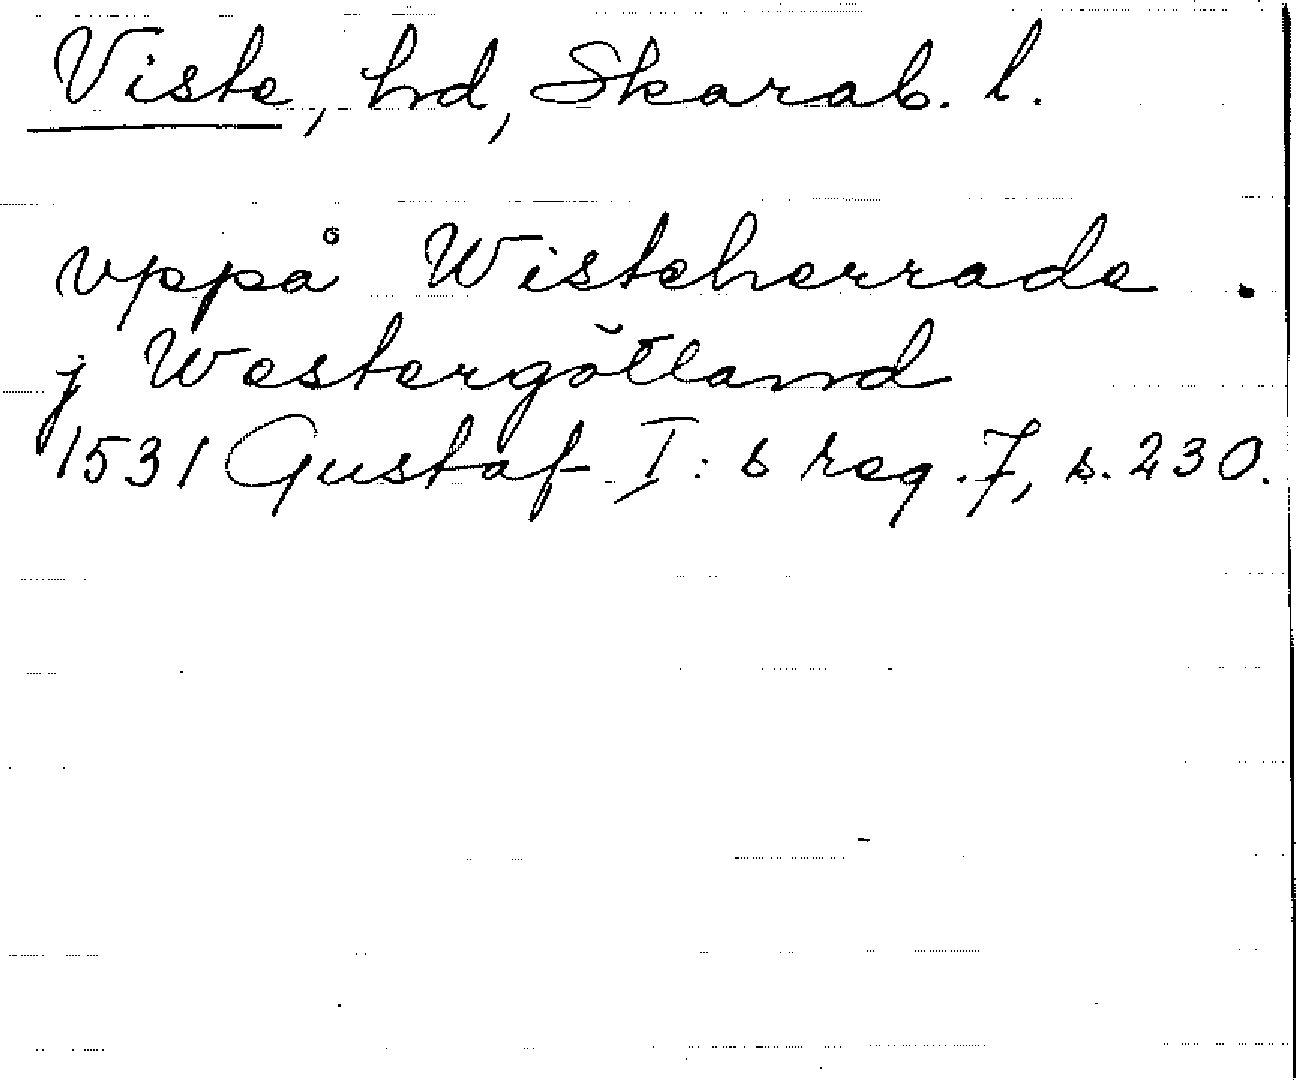 Viste, hd, Skarab. l.
vppå Wisteherrade.
j Westergötland
1531 Gustaf I:s reg. 7, s. 230.